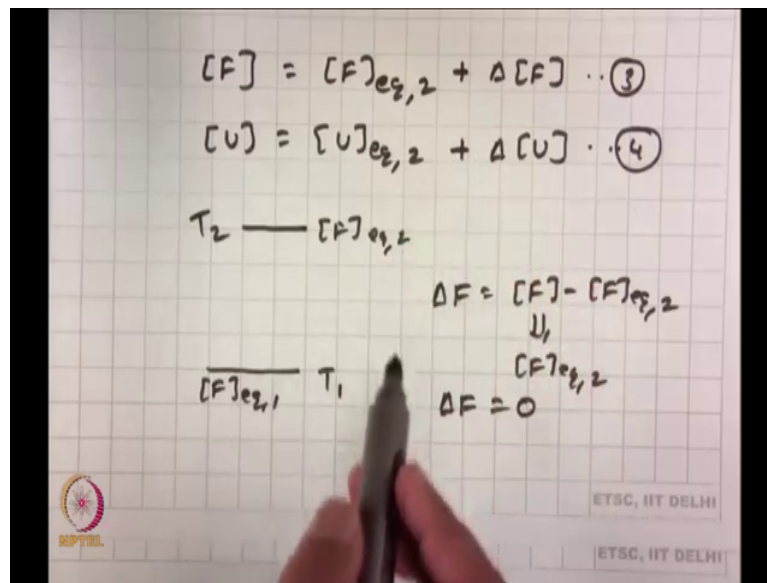 [F] = [F]eq,2 + Δ[F] ..③
[U] = [U]eq,2 + Δ[U] ..④
T2 — [F]eq,2
ΔF = [F] - [F]eq,2
⇓
[F]eq,2
[F]eq,1 T1
ΔF = 0
ETSC, IIT DELHI
NPTEL
ETSC, IIT DELHI